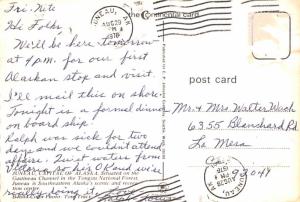 Fri-Nite
Hi Folks,
We'll be here tomorrow
at 4 P.M. for our first
Alaskan stop and visit.
I'll mail this on shore
Tonight is a formal dinner
on board ship.
Ralph was sick for two
days and we couldn't attend
affairs. Quiet waters from
Victoria
doing it
JUNEAU, CAPITAL OF ALASKA, Situated on the
Gastineau Channel in the Tongass National Forest,
Juneau is Southeastern Alaska's scenic and recrea-
tion center.
JUNEAU, AK
AUG 20
PM
1976
the Continental card
post card
Mr. & Mrs. Walter
6355 Blanchard Rd
La Mesa
JUNEAU
PM